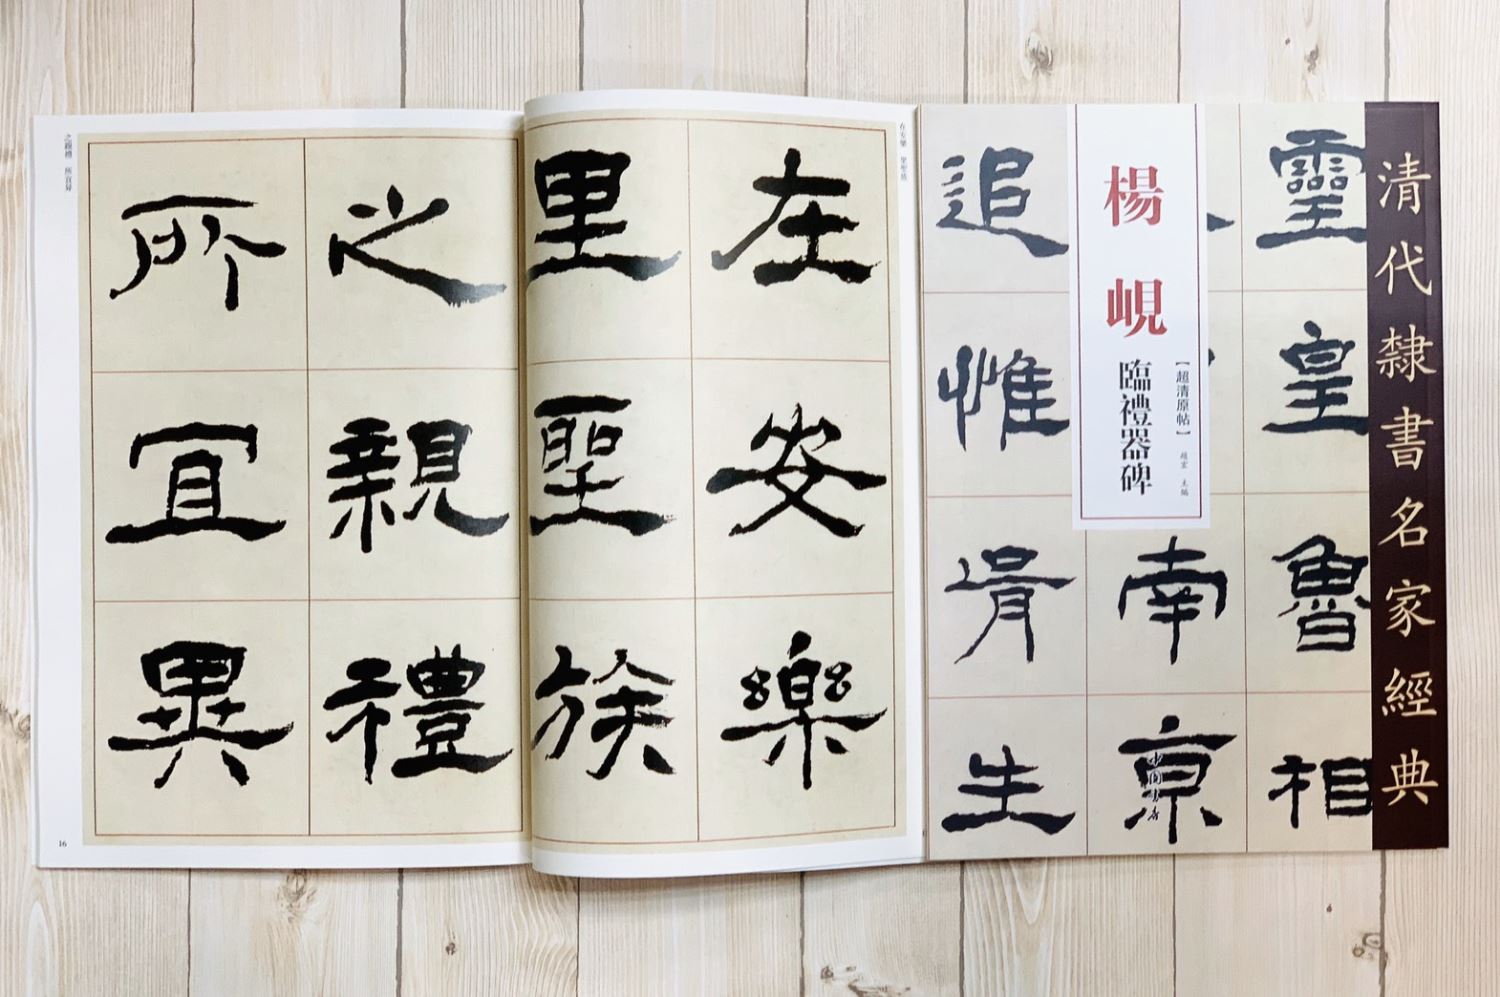 清代隸書名家經典
靈皇魯相
南京
追惟胥生
【超清原帖】
趙宏 主編
楊峴
臨禮器碑
中國書店
在安樂 里聖族
在安樂
里聖族
之親禮
所宜異
之親禮 所宜異
16